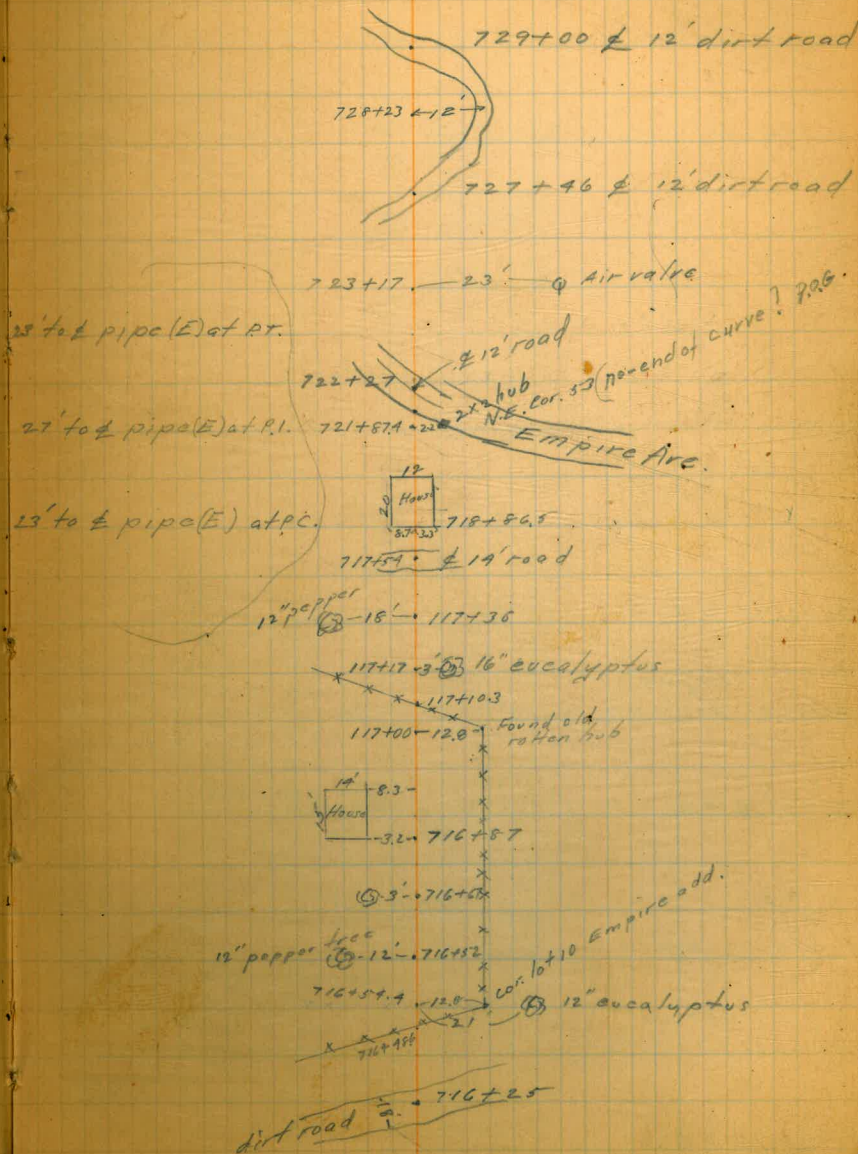 729+00 ⅊ 12' dirt road
728+23 ←12'→
727+46 ⅊ 12' dirt road
723+17 — 23' Air valve
23' to ⅊ pipe (E) at P.T.
⅊ 12' road
722+27
2x2 hub
N.E. Cor. 53 (no-end of curve? P.O.G.
27' to ⅊ pipe (E) at P.I.
721+87.4 22
Empire Ave.
12
20
House
8.7 3.3
718+86.5
23' to ⅊ pipe (E) at P.C.
717+54 ⅊ 14' road
12" pepper
18' 117+36
117+17 3' 16" eucalyptus
117+10.3
117+00 12.8
Found old
rotten hub
14' 8.3
House
3.2 716+87
3' 716+
12" pepper tree
12' 716+52
716+54.4 12.8
Cor. lot 10 Empire add.
21' 12" eucalyptus
716+48
716+25
18
dirt road